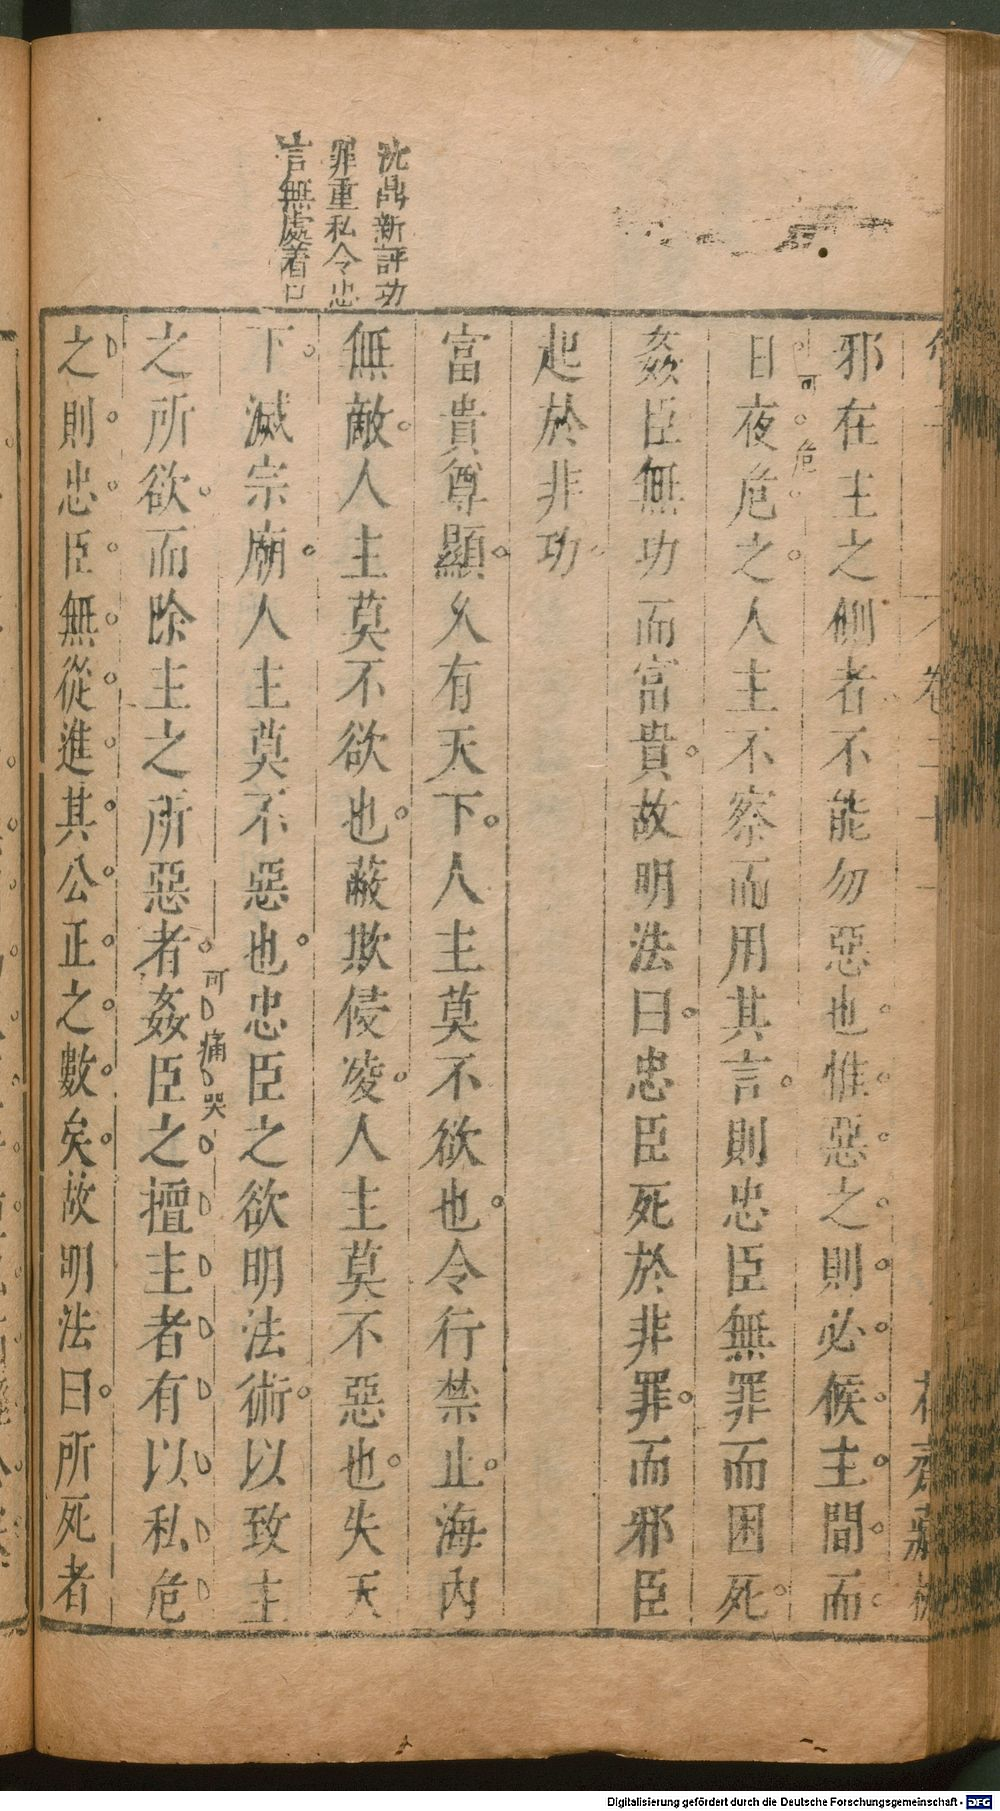 沈鼎新評功
罪重私令忠
言無處着口
邪在主之側者不能勿惡也惟惡之則必候主間而
日夜危之人主不察而用其言則忠臣無罪而困死
可危
姦臣無功而富貴故明法曰忠臣死於非罪而邪臣
起於非功
富貴尊顯久有天下人主莫不欲也令行禁止海內
無敵人主莫不欲也蔽欺侵凌人主莫不惡也失天
下滅宗廟人主莫不惡也忠臣之欲明法術以致主
之所欲而除主之所惡者姦臣之擅主者有以私危
可痛哭
之則忠臣無從進其公正之數矣故明法曰所死者
Digitalisierung gefördert durch die Deutsche Forschungsgemeinschaft - DFG